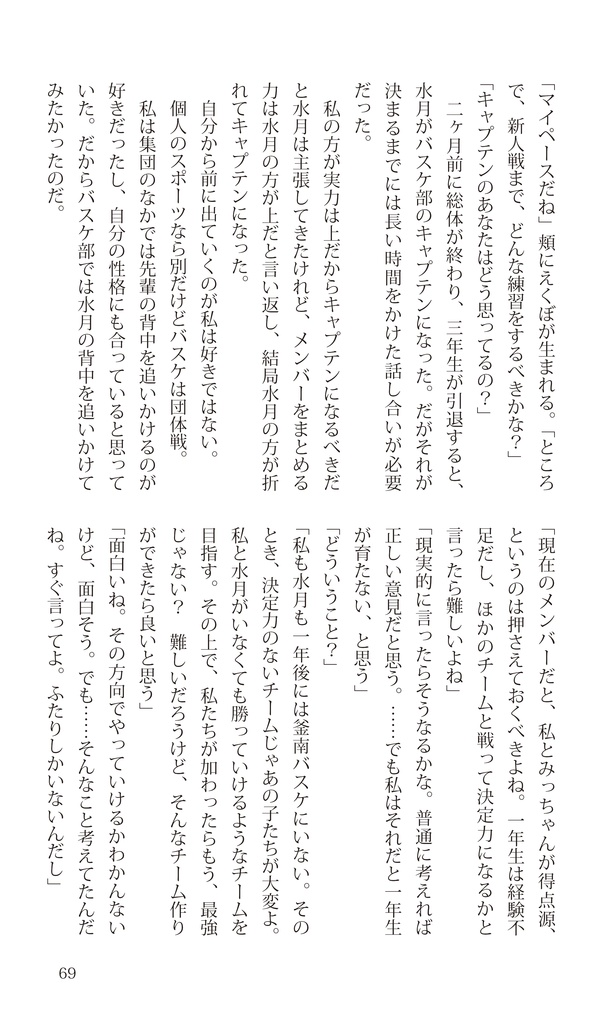 「マイペースだね」頬にえくぼが生まれる。「ところ
で、新人戦まで、どんな練習をするべきかな？」
「キャプテンのあなたはどう思ってるの？」
　二ヶ月前に総体が終わり、三年生が引退すると、
水月がバスケ部のキャプテンになった。だがそれが
決まるまでには長い時間をかけた話し合いが必要
だった。
　私の方が実力は上だからキャプテンになるべきだ
と水月は主張してきたけれど、メンバーをまとめる
力は水月の方が上だと言い返し、結局水月の方が折
れてキャプテンになった。
　自分から前に出ていくのが私は好きではない。
　個人のスポーツなら別だけどバスケは団体戦。
　私は集団のなかでは先輩の背中を追いかけるのが
好きだったし、自分の性格にも合っていると思って
いた。だからバスケ部では水月の背中を追いかけて
みたかったのだ。
「現在のメンバーだと、私とみっちゃんが得点源、
というのは押さえておくべきよね。一年生は経験不
足だし、ほかのチームと戦って決定力になるかと
言ったら難しいよね」
「現実的に言ったらそうなるかな。普通に考えれば
正しい意見だと思う。……でも私はそれだと一年生
が育たない、と思う」
「どういうこと？」
「私も水月も一年後には釜南バスケにいない。その
とき、決定力のないチームじゃあの子たちが大変よ。
私と水月がいなくても勝っていけるようなチームを
目指す。その上で、私たちが加わったらもう、最強
じゃない？　難しいだろうけど、そんなチーム作り
ができたら良いと思う」
「面白いね。その方向でやっていけるかわかんない
けど、面白そう。でも……そんなこと考えてたんだ
ね。すぐ言ってよ。ふたりしかいないんだし」
69